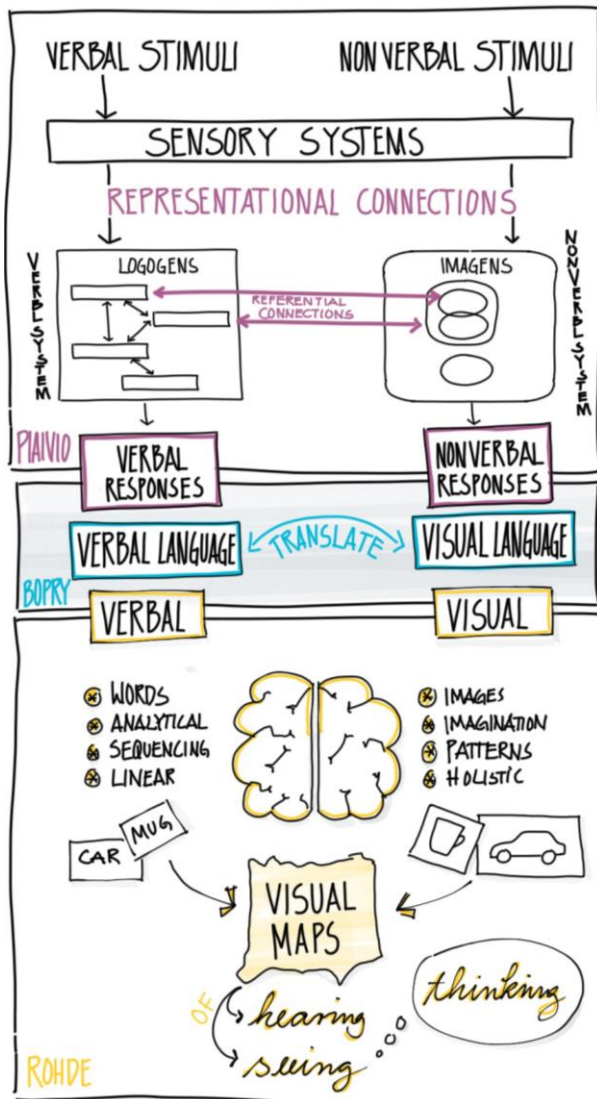 VERBAL STIMULI
NONVERBAL STIMULI
SENSORY SYSTEMS
REPRESENTATIONAL CONNECTIONS
VERBL SYSTEM
LOGOGENS
REFERENTIAL
CONNECTIONS
IMAGENS
NONVERBL SYSTEM
PIAIVIO
VERBAL
RESPONSES
NONVERBAL
RESPONSES
VERBAL LANGUAGE
TRANSLATE
VISUAL LANGUAGE
BOPRY
VERBAL
VISUAL
WORDS
ANALYTICAL
SEQUENCING
LINEAR
IMAGES
IMAGINATION
PATTERNS
HOLISTIC
CAR
MUG
VISUAL
MAPS
OF
hearing
seeing
thinking
ROHDE